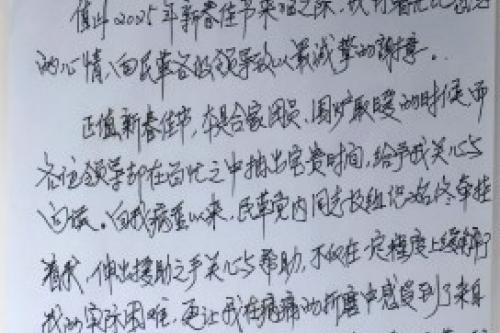 值此2025年新春佳节来临之际,我怀着无比感恩
的心情,向民革各级领导致以最诚挚的谢意。
正值新春佳节,本是合家团员,围炉取暖的时候,而
各位领导却在百忙之中抽出宝贵时间,给予我关心与
问候。自我病重以来,民革党内同志及组织始终牵挂
着我,伸出援助之手关心与帮助,不仅在一定程度上缓解了
我的实际困难,更让我在病痛的折磨中感受到了来自